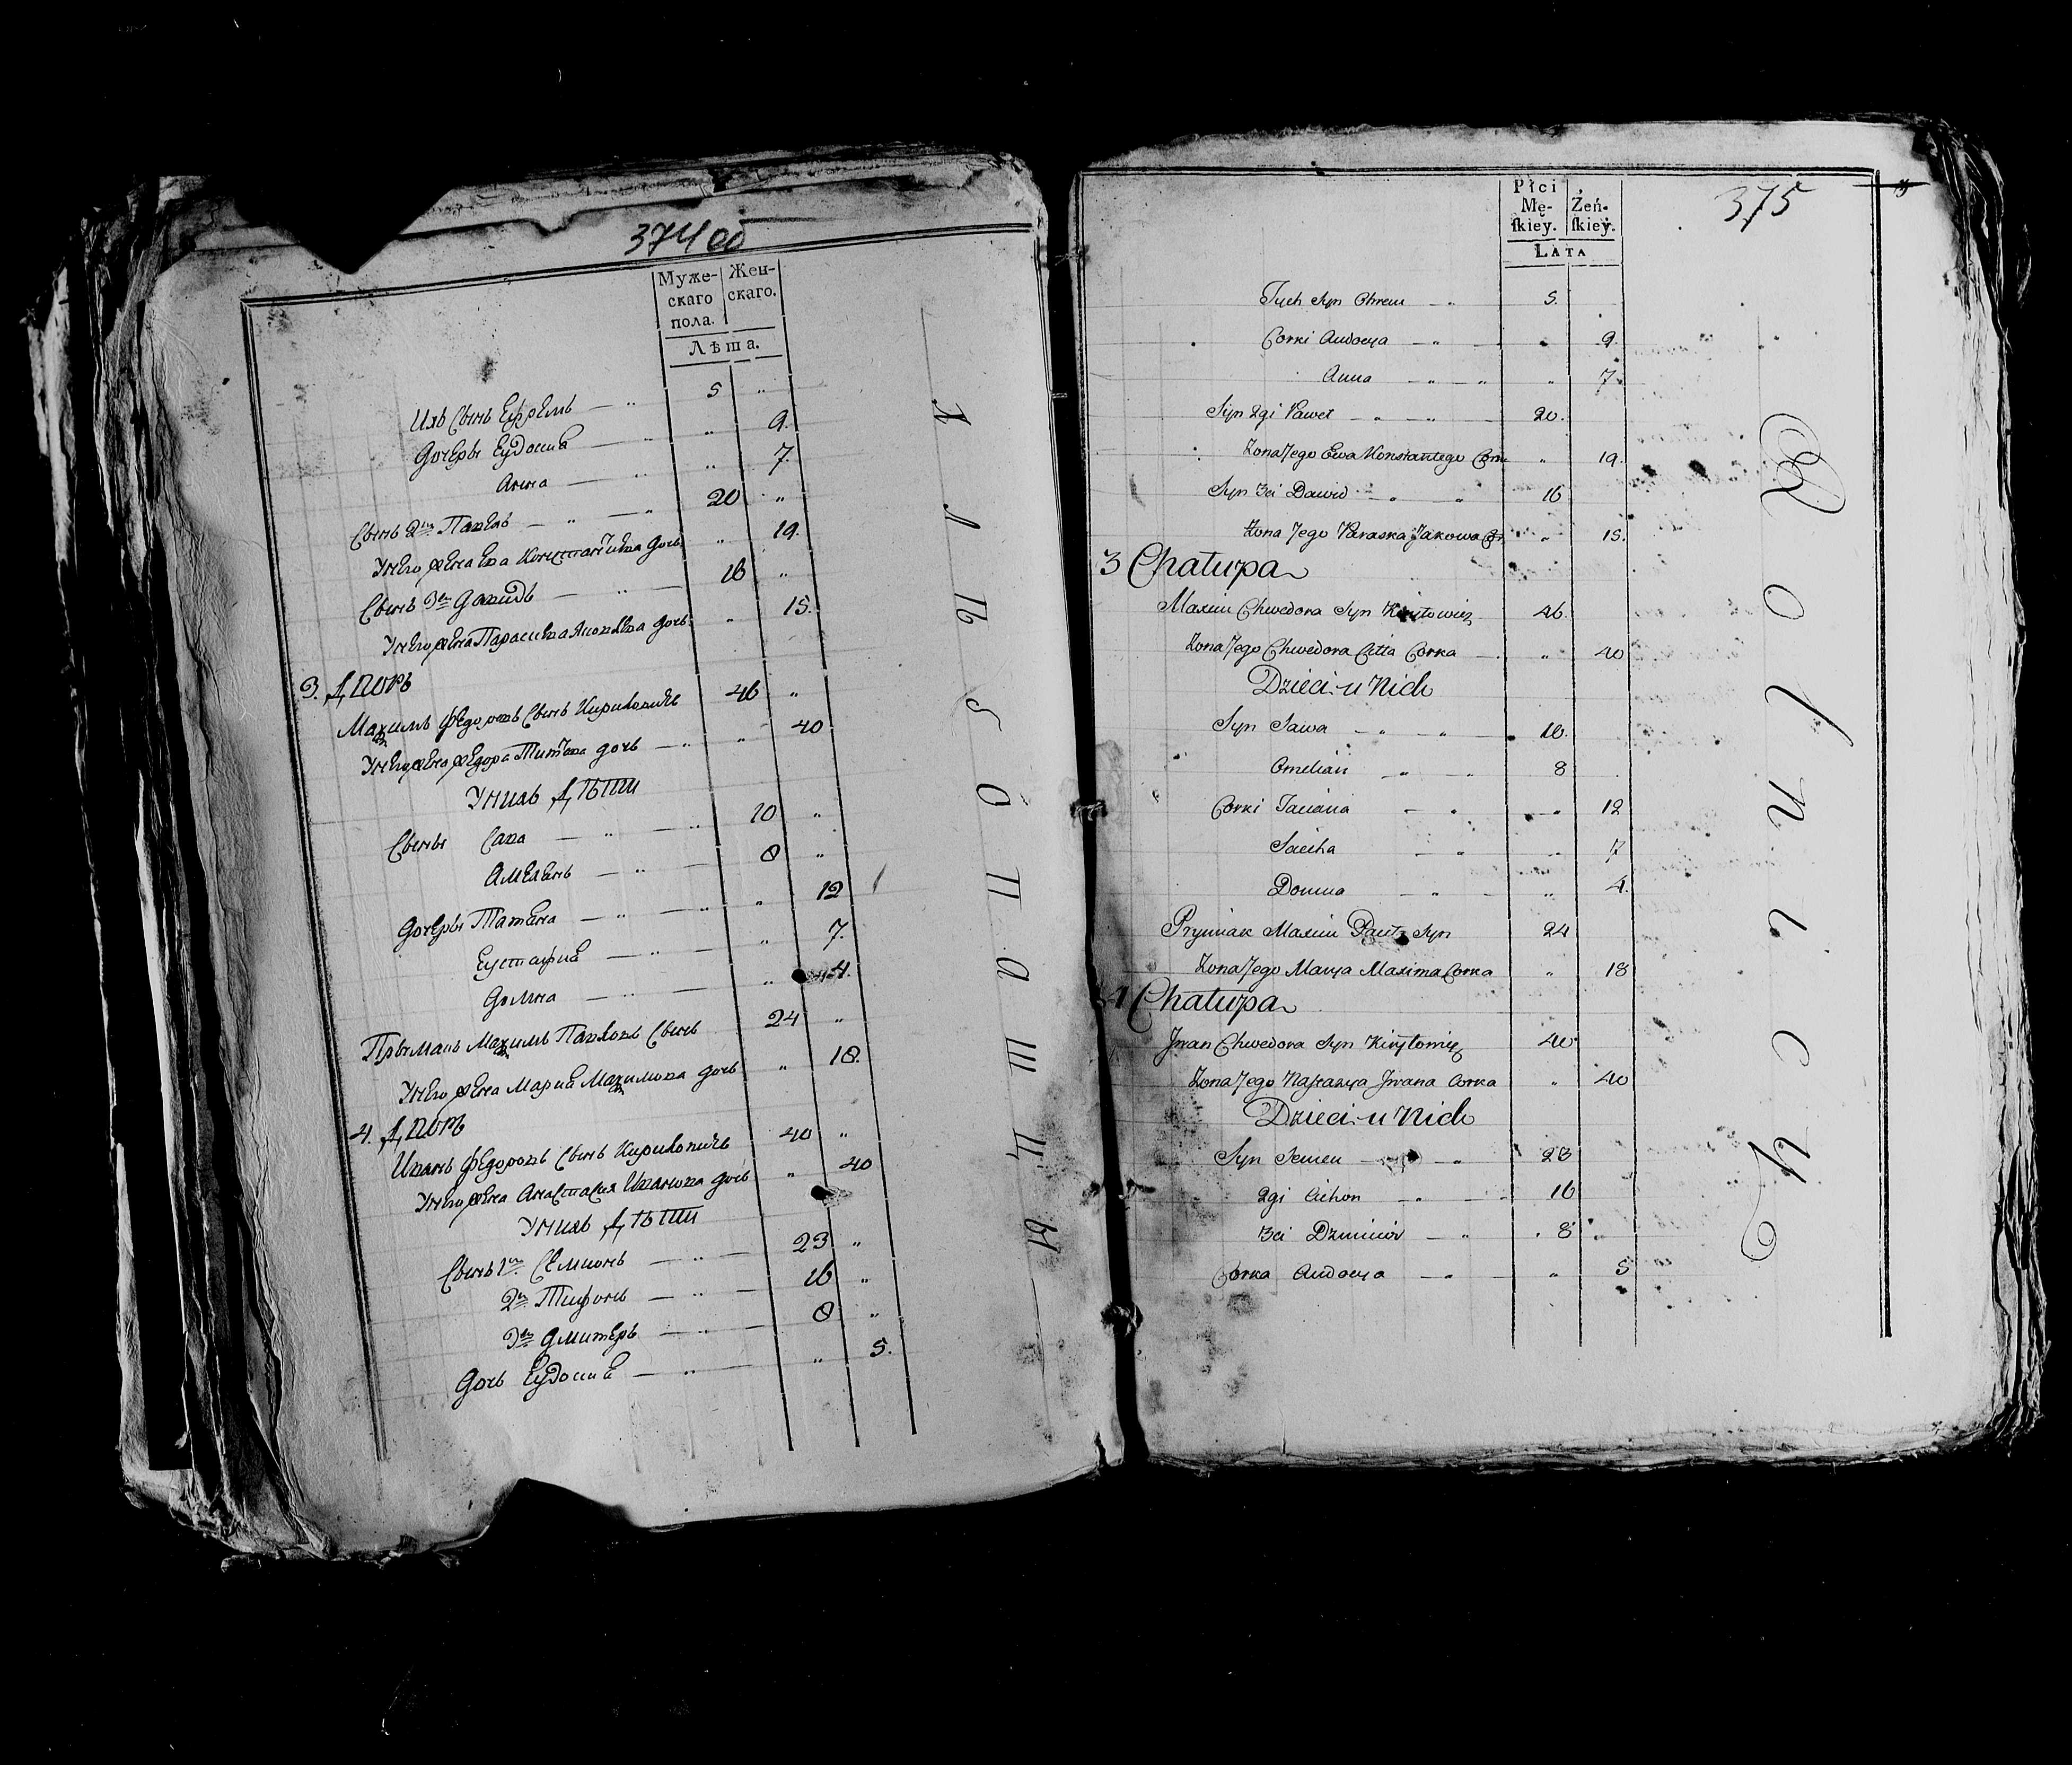 374 об
Муже-
скаго
пола.
Жен-
скаго.
Лѣта.
Ихъ Сынъ Ефремъ — „ 5 „
Дочеры Еудокия — „ „ 9.
Анна — „ „ 7.
Сынъ 2й Павелъ — „ — „ 20 „
У него жена Ева Констант дочь „ 19.
Сынъ 3й Давидъ — „ — 16 „
У него жена Параскева Яковлева дочь „ 15.
3. Дворъ
Максимъ Федоровъ Сынъ Кириловичъ 46 „
У него жена Федора Титова дочь — „ „ 40
У нихъ Дѣти
Сыны Сава — „ — „ 10 „
Амелянъ — „ — 8 „
Дочеры Татяна — „ — „ „ 12
Еустафия — „ — „ 7.
Домна — „ — „ 4.
Прыманъ Максимъ Павловъ Сынъ 24 „
У него жена Мария Максимова дочь „ 18.
4. Дворъ
Иванъ Федоровъ Сынъ Кириловичъ 40 „
У него жена Анастасия Иванова дочь „ 40
У нихъ Дѣти
Сынъ 1й Семионъ — „ — 23 „
2й Тифонъ — „ — 16 „
3й Дмитеръ — „ — 8 „
Дочь Еудокия — „ — „ 5.
Х л ѣ б о п а ш ц ы
375
Płci
Mę-
ſkiey.
Żeń-
ſkiey.
LATA
Tych Syn Chrem — „ 5.
Corki Audocya — „ — „ 9.
Anna — „ — „ „ 7.
Syn 2gi Paweł — „ — „ 20.
Zona Jego Ewa Konstantego Corka „ 19.
Syn 3ci Dawid — „ „ 16
Zona Jego Paraska Jakowa Cor „ 15.
3 Chałupa
Maxim Chwedora Syn Kiryłowicz 46.
Zona Jego Chwedora Citta Corka — „ 40
Dzieci u Nich
Syn Sawa — „ — „ 10.
Omelian — „ — „ 8
Corki Taciana — „ — „ 12
Domna — „ — „ 4.
Pryimak Maxim Pawła Syn 24
Zona Jego Marya Maxima Corka „ 18
4 Chałupa
Jwan Chwedora Syn Kiryłowicz 40
Zona Jego Nastazya Jwana Corka „ 40
Dzieci u Nich
Syn Semen — „ 23
2gi Cichon — „ — 16
3ci Dzmicier — „ . 8
Corka Audocya — „ — „ 5
R o l n i c y